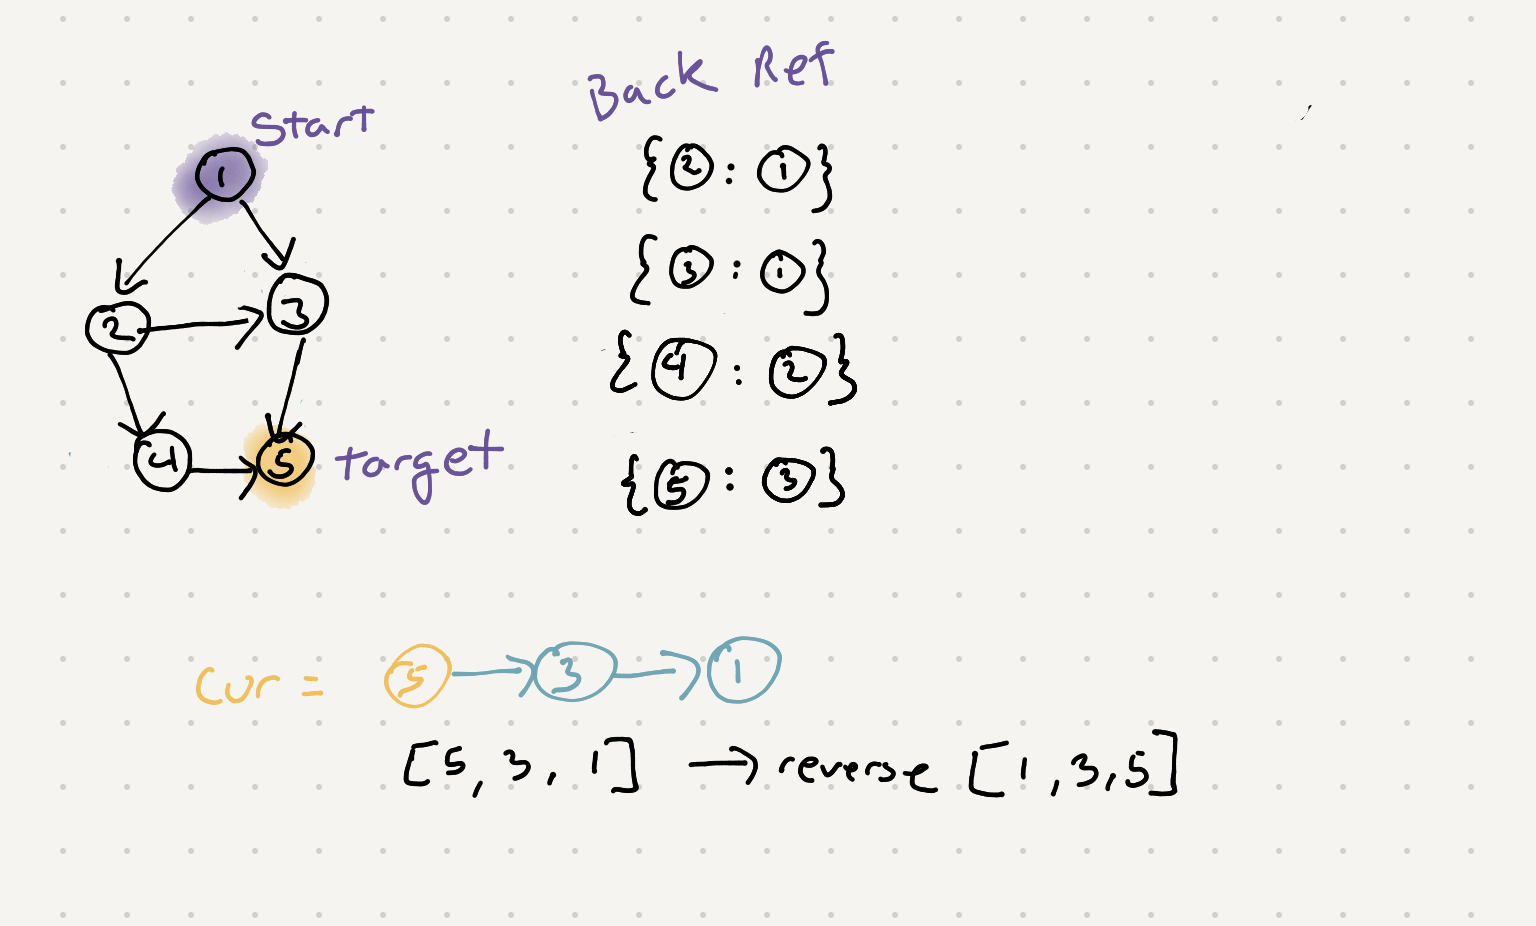 Start
1
2
3
4
5
target
Back Ref
{2 : 1}
{3 : 1}
{4 : 2}
{5 : 3}
Cur = 5 → 3 → 1
[5, 3, 1] → reverse [1, 3, 5]